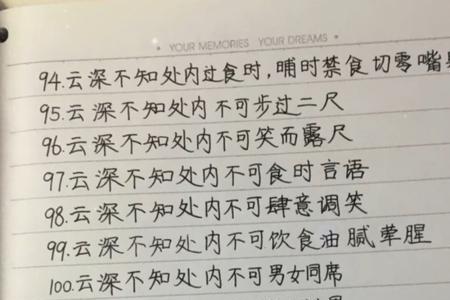 YOUR MEMORIES YOUR DREAMS
94.云深不知处内过食时,晡时禁食切零嘴
95.云深不知处内不可步过二尺
96.云深不知处内不可笑而露尺
97.云深不知处内不可食时言语
98.云深不知处内不可肆意调笑
99.云深不知处内不可饮食油腻荤腥
100.云深不知处内不可男女同席